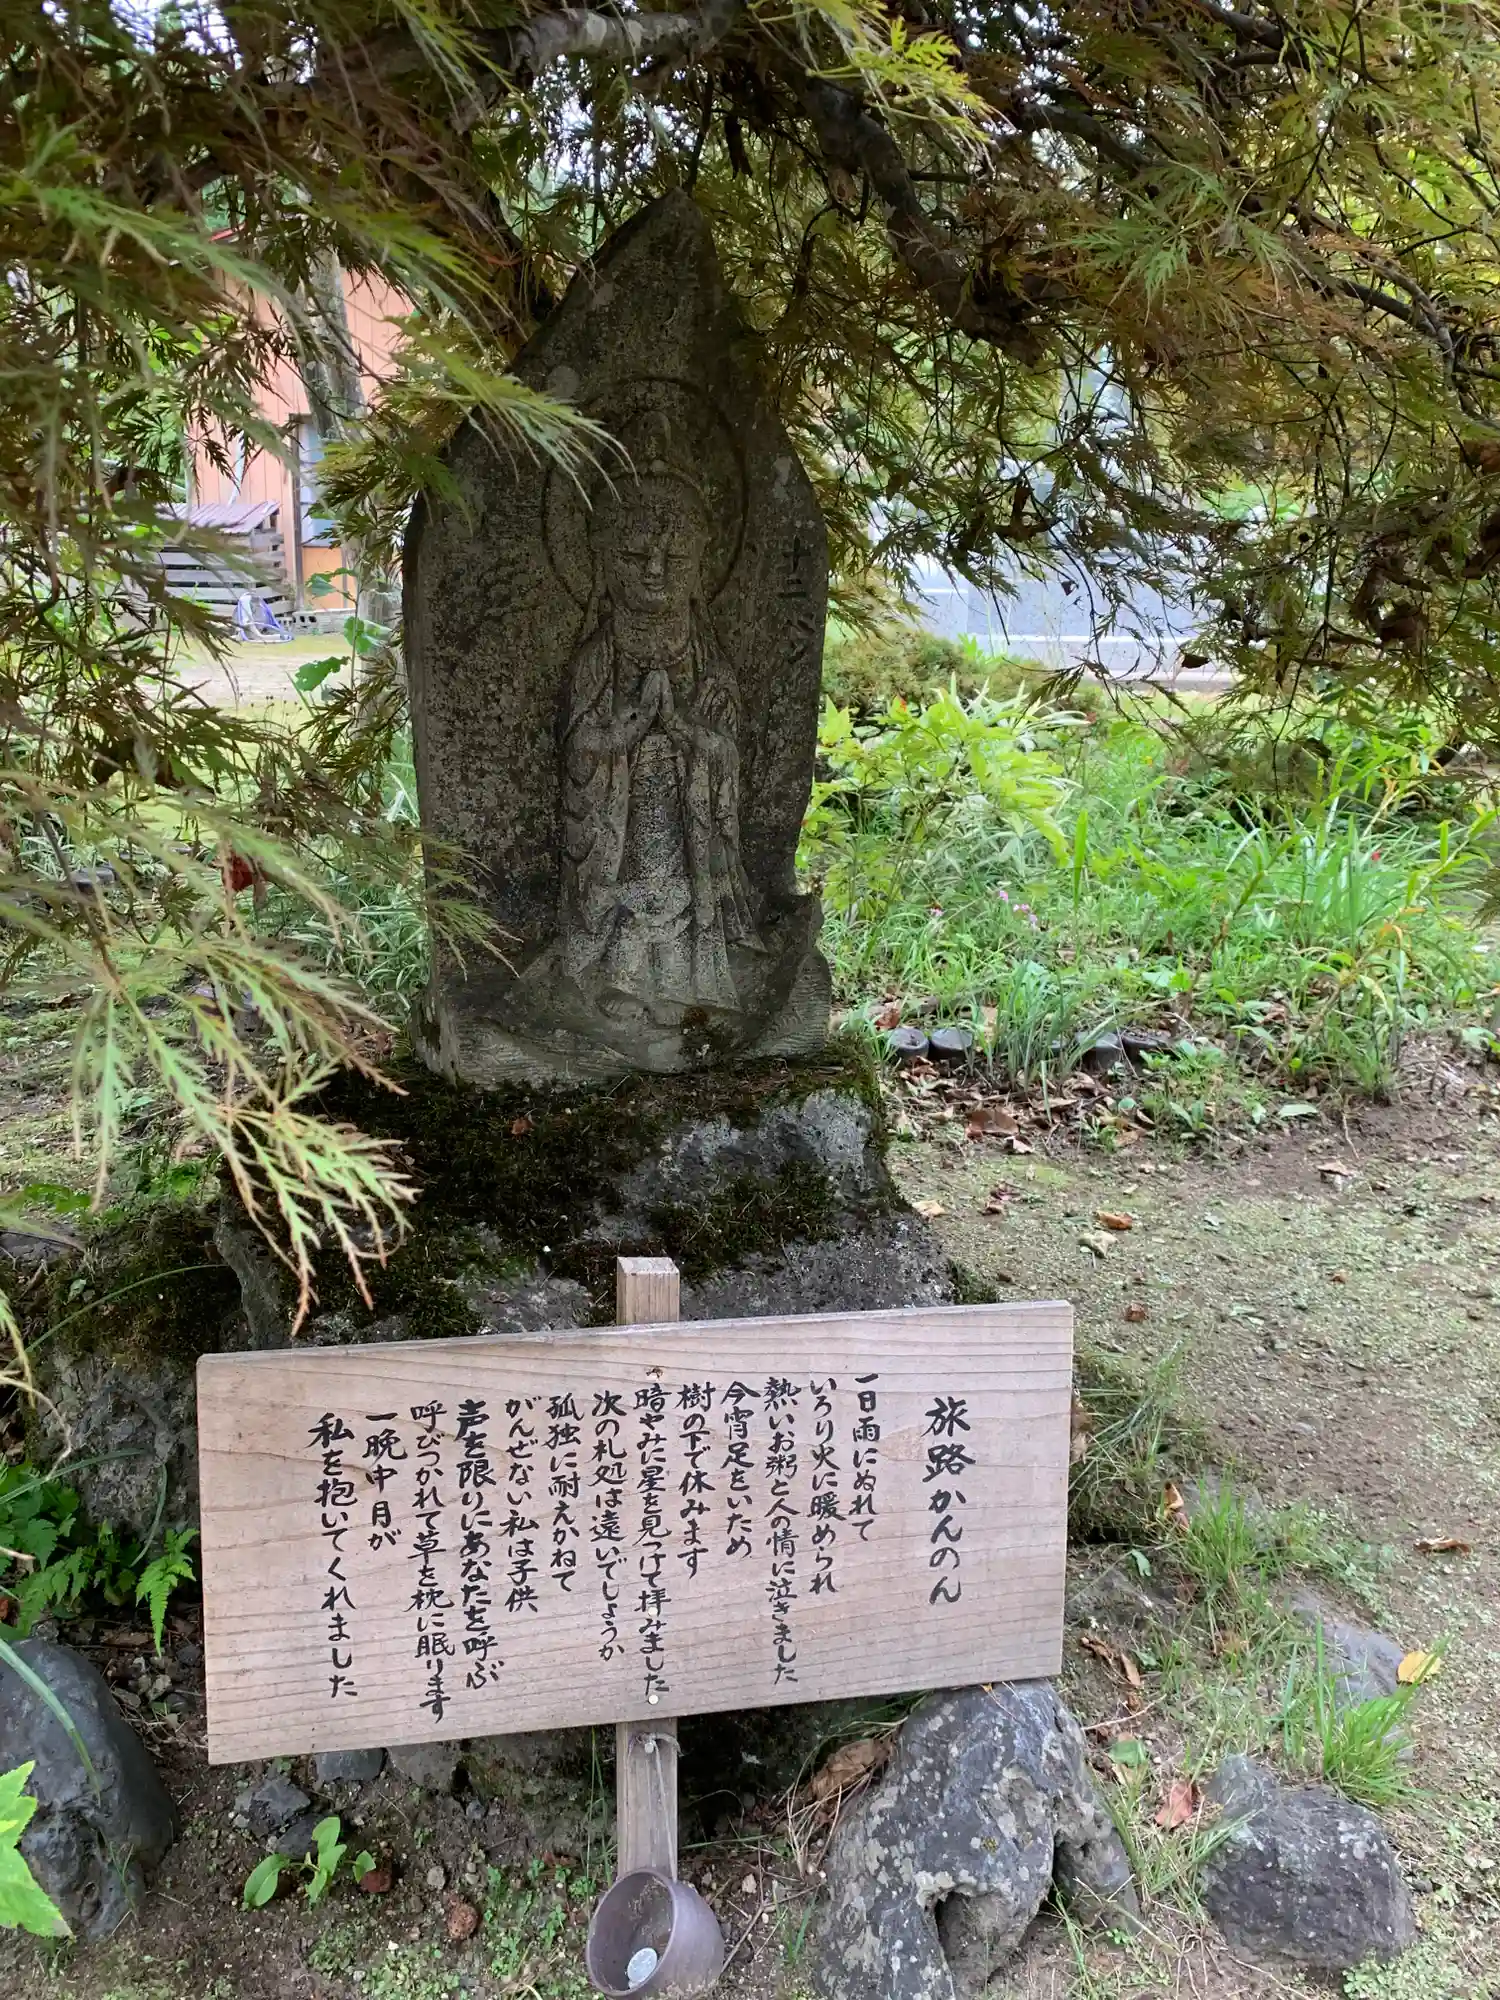 十二バン
旅路かんのん
一日雨にぬれて
いろり火に暖められ
熱いお粥と人の情に泣きました
今宵足をいため
樹の下で休みます
暗やみに星を見つけて拝みました
次の札処は遠いでしょうか
孤独に耐えかねて
がんぜない私は子供
声を限りにあなたを呼ぶ
呼びつかれて草を枕に眠ります
一晩中月が
私を抱いてくれました